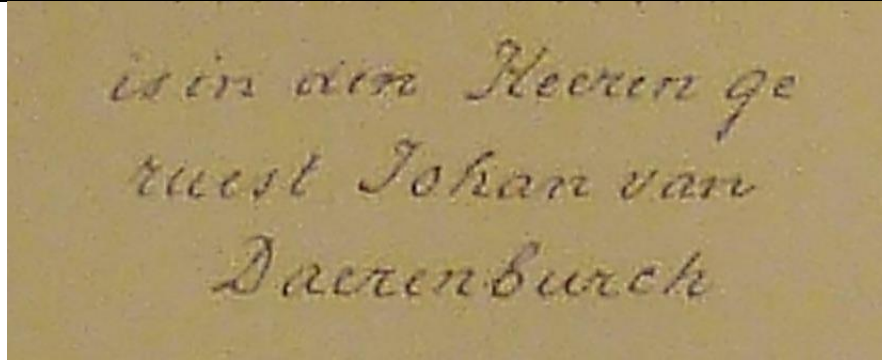 is in den Heeren ge
ruest Johan van
Daerenburch